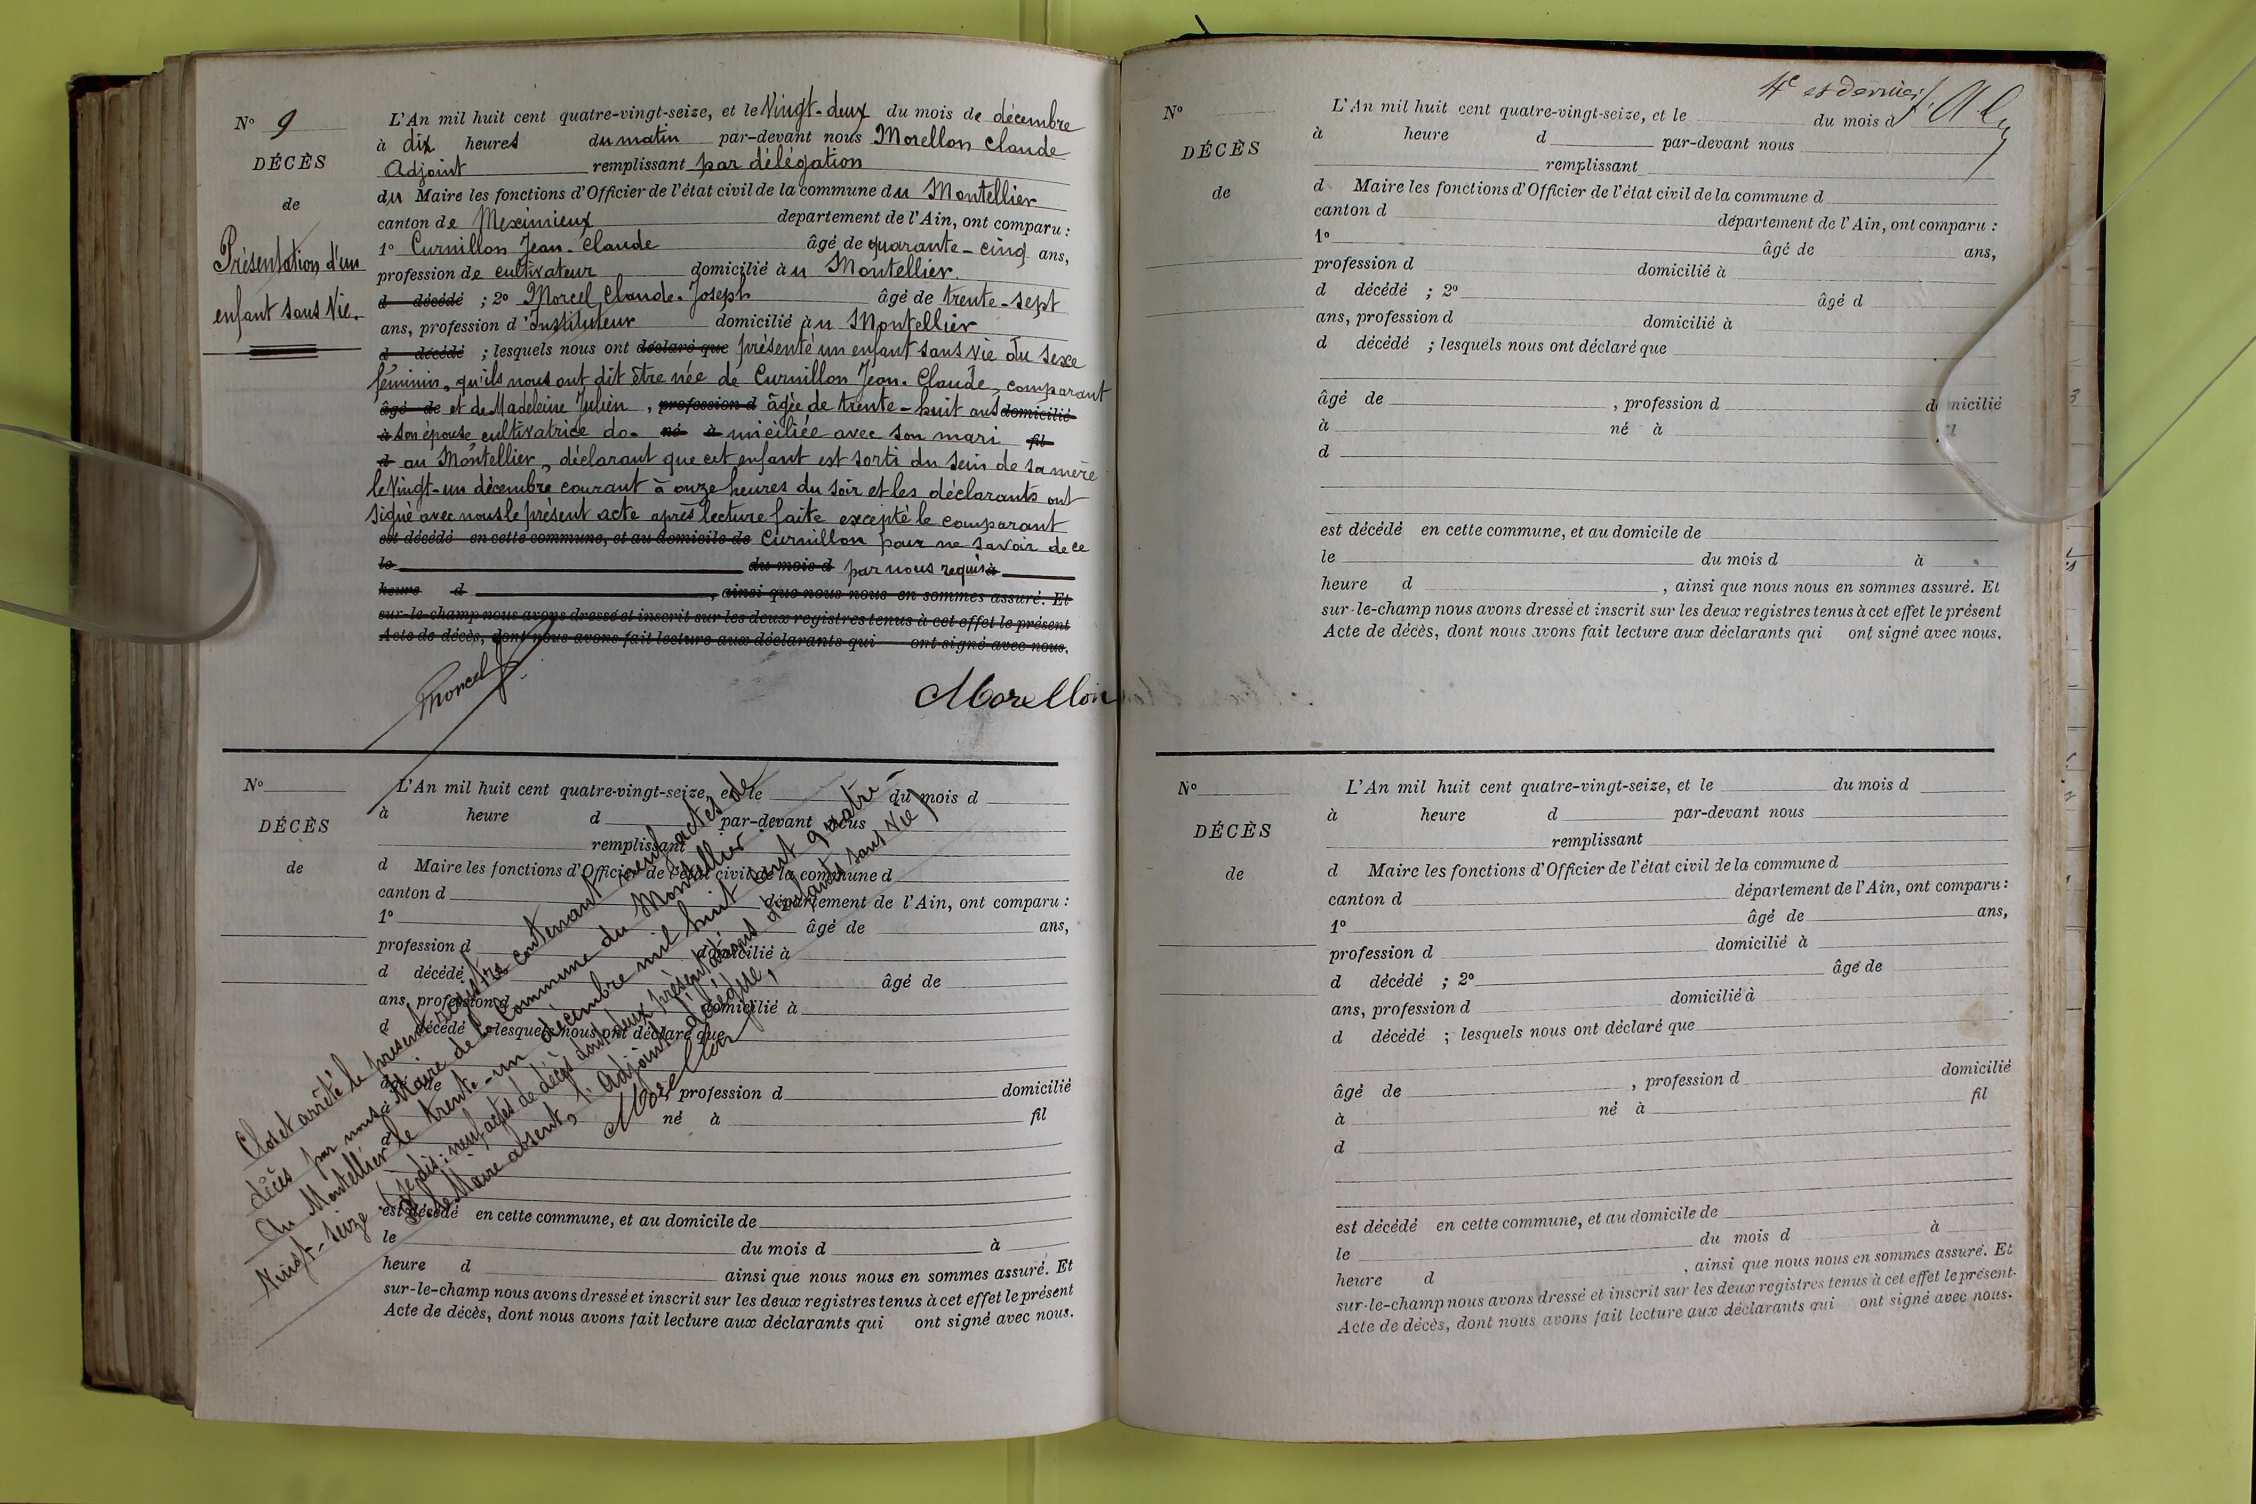 N° 9
DÉCÈS
de
Présentation d'un
enfant sans Vie.
L'An mil huit cent quatre-vingt-seize, et le Vingt-deux du mois de décembre
à dix heures du matin par-devant nous Morellon Claude
Adjoint remplissant par délégation
du Maire les fonctions d'Officier de l'état civil de la commune du Montellier
canton de Meximieux département de l'Ain, ont comparu :
1° Curnillon Jean-Claude âgé de quarante-cinq ans,
profession de cultivateur domicilié au Montellier
d décédé ; 2° Morcel Claude-Joseph âgé de trente-sept
ans, profession d'Instituteur domicilié au Montellier
d décédé ; lesquels nous ont déclaré que présenté un enfant sans vie du sexe
féminin, qu'ils nous ont dit être née de Curnillon Jean-Claude, comparant
âgé de et de Madeleine Julien, profession d âgée de trente-huit ans domicilié
à son épouse, cultivatrice do- né à miciliée avec son mari fil
d au Montellier, déclarant que cet enfant est sorti du sein de sa mère
le Vingt-un décembre courant à onze heures du soir et les déclarants ont
signé avec nous le présent acte après lecture faite excepté le comparant
est décédé en cette commune, et au domicile de Curnillon pour ne savoir de ce
le du mois d par nous requis à
heure d , ainsi que nous nous en sommes assuré. Et
sur-le-champ nous avons dressé et inscrit sur les deux registres tenus à cet effet le présent
Acte de décès, dont nous avons fait lecture aux déclarants qui ont signé avec nous.
Morcel Morellon
N°
DÉCÈS
de
L'An mil huit cent quatre-vingt-seize, et le du mois d
à heure d par-devant nous
remplissant
d Maire les fonctions d'Officier de l'état civil de la commune d
canton d département de l'Ain, ont comparu :
1° âgé de ans,
profession d domicilié à
d décédé âgé de
ans, profession d domicilié à
d décédé lesquels nous ont déclaré que
âgé de , profession d domicilié
à né à fil
d
est décédé en cette commune, et au domicile de
le du mois d à
heure d ainsi que nous nous en sommes assuré. Et
sur-le-champ nous avons dressé et inscrit sur les deux registres tenus à cet effet le présent
Acte de décès, dont nous avons fait lecture aux déclarants qui ont signé avec nous.
Clos et arrêté le présent registre contenant neuf actes de
décès par nous Maire de la Commune du Montellier.
Au Montellier le trente-un décembre mil huit cent quatre-
Vingt-seize (je dis: neuf actes de décès dont deux présentations d'enfants sans vie)
P. le Maire absent, l'Adjoint délégué,
Morellon
4e et dernier
N°
DÉCÈS
de
L'An mil huit cent quatre-vingt-seize, et le du mois d
à heure d par-devant nous
remplissant
d Maire les fonctions d'Officier de l'état civil de la commune d
canton d département de l'Ain, ont comparu :
1° âgé de ans,
profession d domicilié à
d décédé ; 2° âgé d
ans, profession d domicilié à
d décédé ; lesquels nous ont déclaré que
âgé de , profession d domicilié
à né à fil
d
est décédé en cette commune, et au domicile de
le du mois d à
heure d , ainsi que nous nous en sommes assuré. Et
sur-le-champ nous avons dressé et inscrit sur les deux registres tenus à cet effet le présent
Acte de décès, dont nous avons fait lecture aux déclarants qui ont signé avec nous.
N°
DÉCÈS
de
L'An mil huit cent quatre-vingt-seize, et le du mois d
à heure d par-devant nous
remplissant
d Maire les fonctions d'Officier de l'état civil de la commune d
canton d département de l'Ain, ont comparu :
1° âgé de ans,
profession d domicilié à
d décédé ; 2° âgé de
ans, profession d domicilié à
d décédé ; lesquels nous ont déclaré que
âgé de , profession d domicilié
à né à fil
d
est décédé en cette commune, et au domicile de
le du mois d à
heure d , ainsi que nous nous en sommes assuré. Et
sur-le-champ nous avons dressé et inscrit sur les deux registres tenus à cet effet le présent
Acte de décès, dont nous avons fait lecture aux déclarants qui ont signé avec nous.